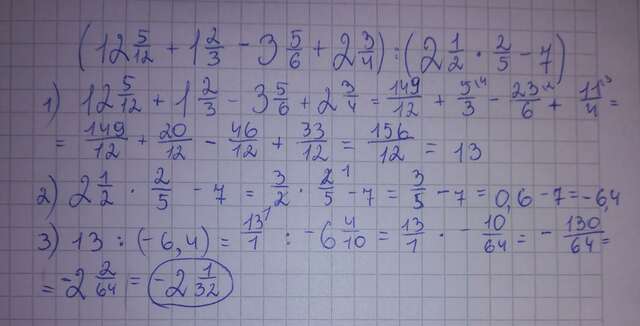 (12 5/12 + 1 2/3 - 3 5/6 + 2 3/4) : (2 1/2 · 2/5 - 7)
1) 12 5/12 + 1 2/3 - 3 5/6 + 2 3/4 = 149/12 + 5/3 ⁴ - 23/6 ² + 11/4 ³ =
= 149/12 + 20/12 - 46/12 + 33/12 = 156/12 = 13
2) 2 1/2 · 2/5 - 7 = 3/2 · 2/5 ¹ - 7 = 3/5 - 7 = 0,6 - 7 = -6,4
3) 13 : (-6,4) = 13/1 ¹ : -6 4/10 = 13/1 · - 10/64 = - 130/64 =
= -2 2/64 = -2 1/32